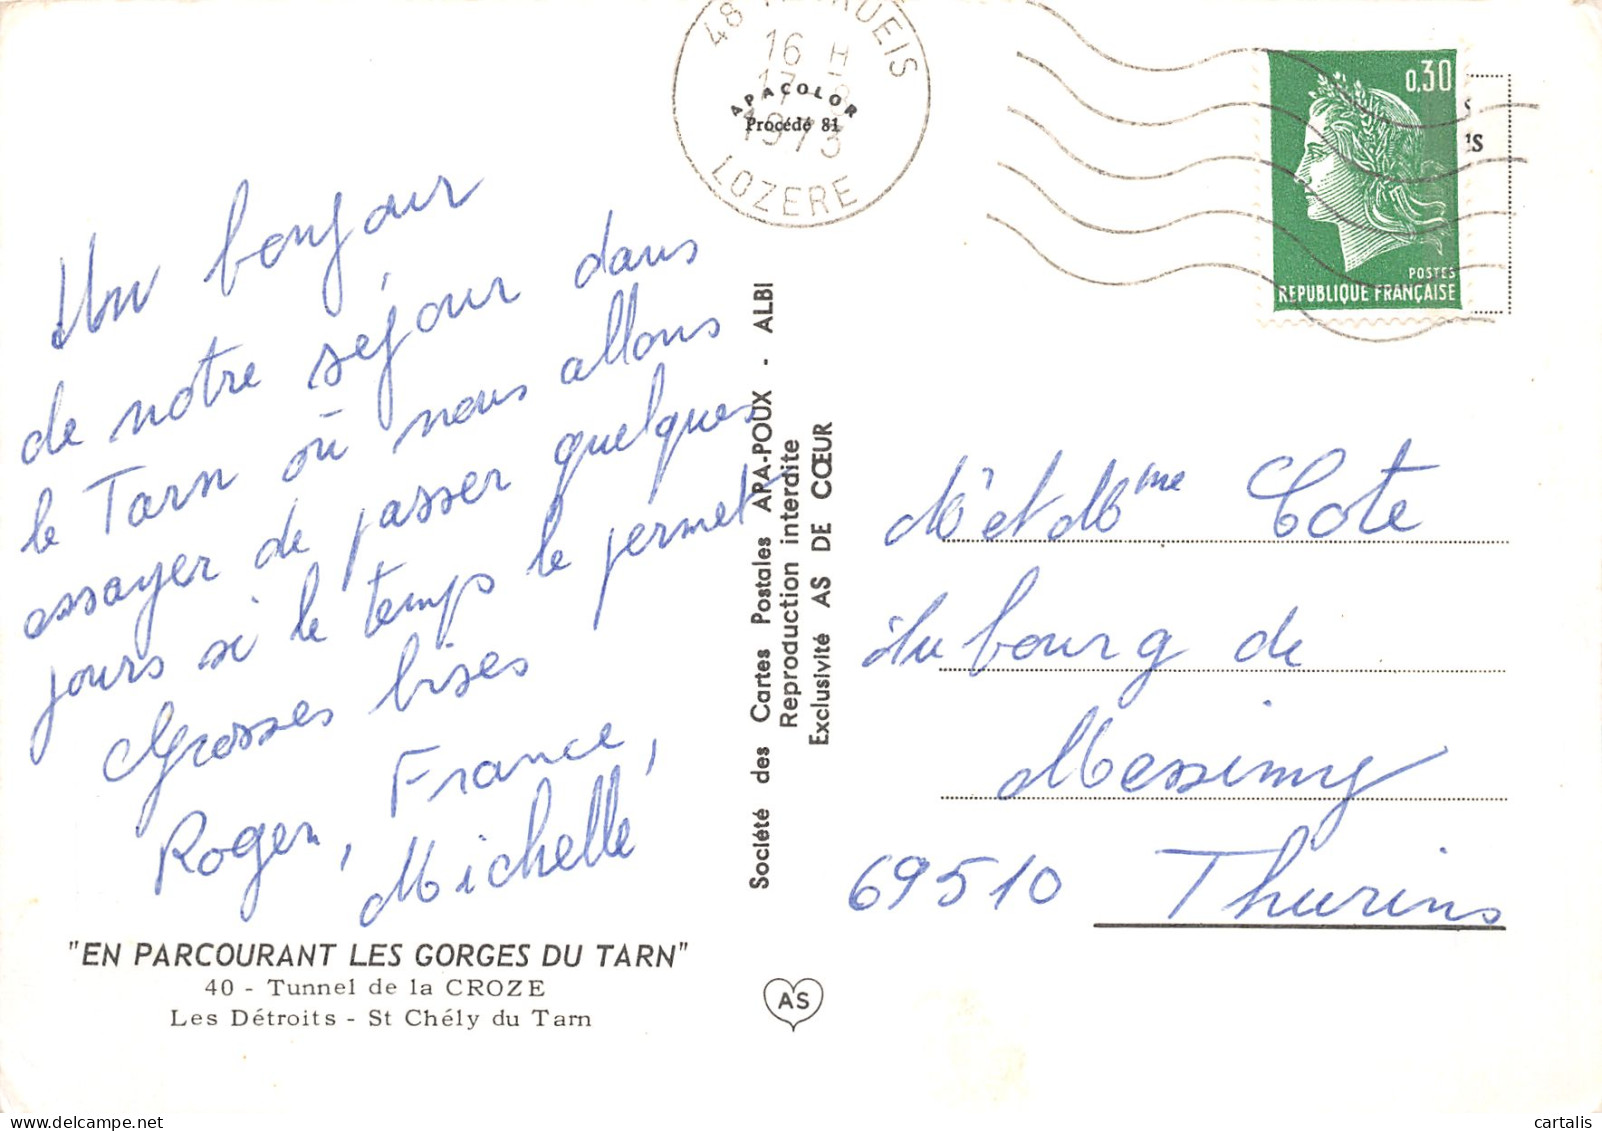 Un bonjour
de notre séjour dans
le Tarn où nous allons
essayer de passer quelques
jours si le temps le permet
Grosses bises
Roger, France,
Michelle
"EN PARCOURANT LES GORGES DU TARN"
40 - Tunnel de la CROZE
Les Détroits - St Chély du Tarn
Société des Cartes Postales APA-POUX - ALBI
Reproduction interdite
Exclusivité AS DE CŒUR
AS
48
16 H
17-8
1973
LOZERE
APACOLOR
Procédé 81
0,30
POSTES
REPUBLIQUE FRANÇAISE
M et Mme Cote
du bourg de
Messimy
69510 Thurins
cartalis